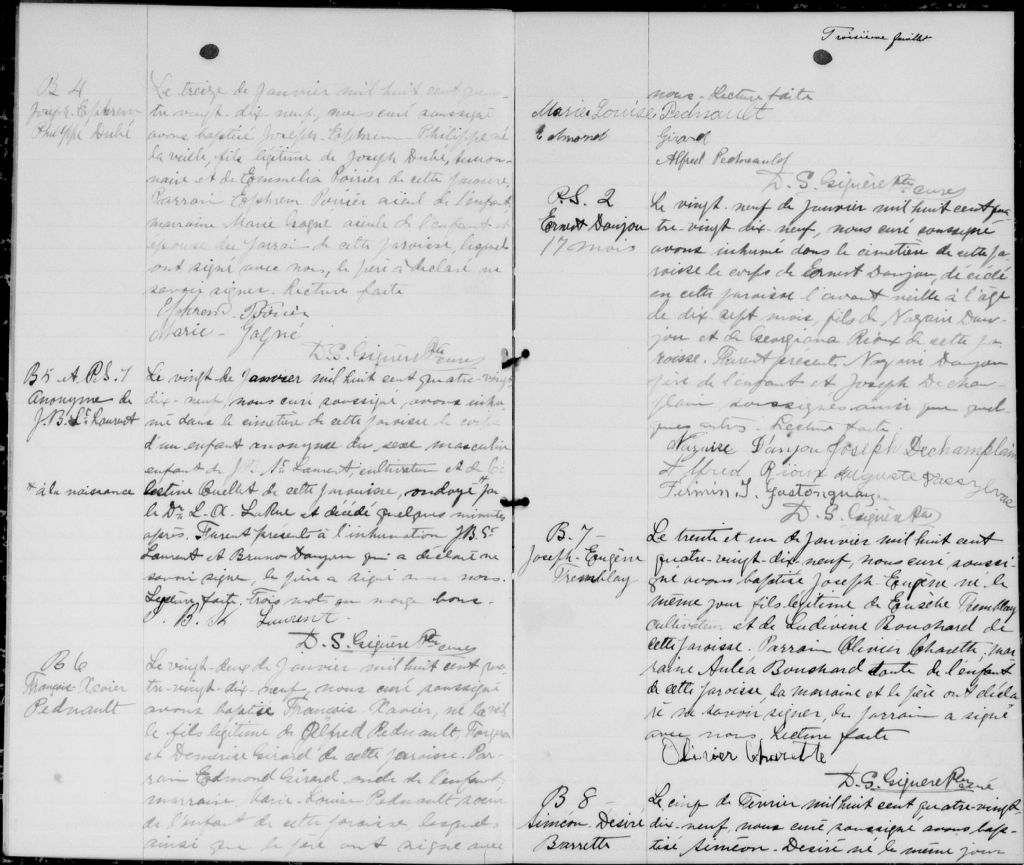 B 4
Joseph-Ephrem
Philippe Dubé
Le treize de Janvier mil huit cent qua-
tre-vingt-dix-neuf, nous curé soussigné
avons baptisé Joseph-Ephrem Philippe né
la veille, fils légitime de Joseph Dubé,
naire et de Emmelia Poirier de cette paroisse,
Parrain Ephrem Poirier aïeul de l'enfant,
marraine Marie Gagné aïeule de l'enfant et
épouse du parrain de cette paroisse, lesquels
ont signé avec nous, le père a déclaré ne
savoir signer. Lecture faite
Ephrem Poirier
Marie Gagné
D. S. Ptre
curé
B 5 et P.S. 1
Anonyme de
J. B. St Laurent
+ à la naissance
Le vingt de Janvier mil huit cent quatre-vingt
dix-neuf, nous curé soussigné, avons inhu-
mé dans le cimetière de cette paroisse le corps
d'un enfant anonyme du sexe masculin
enfant de J. B. St Laurent, cultivateur et de Cé-
lestine Ouellet de cette paroisse, ondoyé + par
le Dr L. A. LaRue et décédé quelques minutes
après. Furent présents à l'inhumation J. B. St
Laurent et Bruno qui a déclaré ne
savoir signer, le père a signé avec nous.
Lecture faite. Trois mots en marge bons.
J. B. St Laurent
D. S. Ptre
curé
B 6
François Xavier
Pednault
Le vingt-deux de Janvier mil huit cent qua
tre-vingt-dix-neuf, nous curé soussigné
avons baptisé François-Xavier, né la veil
le fils légitime de Alfred Pednault, Forgeron
et Demerise Girard de cette paroisse. Par-
rain Edmond Girard oncle de l'enfant,
marraine, Marie-Louise Pednault, soeur
de l'enfant de cette paroisse, lesquels
ainsi que le père ont signé avec
Troisième feuillet
nous. Lecture faite
Marie Louise Pednault
Edmond Girard
Alfred Pednault
D. S. Ptre
curé
P.S. 2
Ernest Danjou
17 mois
Le vingt-neuf de Janvier mil huit cent qua
tre-vingt-dix-neuf, nous curé soussigné
avons inhumé dans le cimetière de cette pa
roisse le corps de Ernest Danjou, décédé
en cette paroisse l'avant veille à l'âge
de dix sept mois, fils de Nazair Dan-
jou et de Georgiana Rioux de cette pa
roisse. Furent présents Nazair Danjou
père de l'enfant et Joseph Decham-
plain soussignés ainsi que quel-
ques autres. Lecture faite.
Nazaire D'anjou Joseph Dechamplain
Alfred Rioux Auguste
Firmin J. Gastonguay
D. S. Ptre
B. 7
Joseph-Eugène
Tremblay
Le trente et un de Janvier mil huit cent
quatre-vingt-dix-neuf, nous curé soussi-
gné avons baptisé Joseph Eugène né le
même jour fils légitime de Eusèbe Tremblay
cultivateur et de Ludivine Bouchard de
cette paroisse. Parrain Olivier Charette, mar
raine Bouchard tante de l'enfant
de cette paroisse, La marraine et le père ont décla
ré ne savoir signer, le parrain a signé
avec nous Lecture faite
Olivier Charette
D. S. Ptre
curé
B 8
Siméon Désiré
Barrette
Le cinq de Février mil huit cent quatre-vingt-
dix-neuf, nous curé soussigné avons bap-
tisé Siméon-Désiré né le même jour